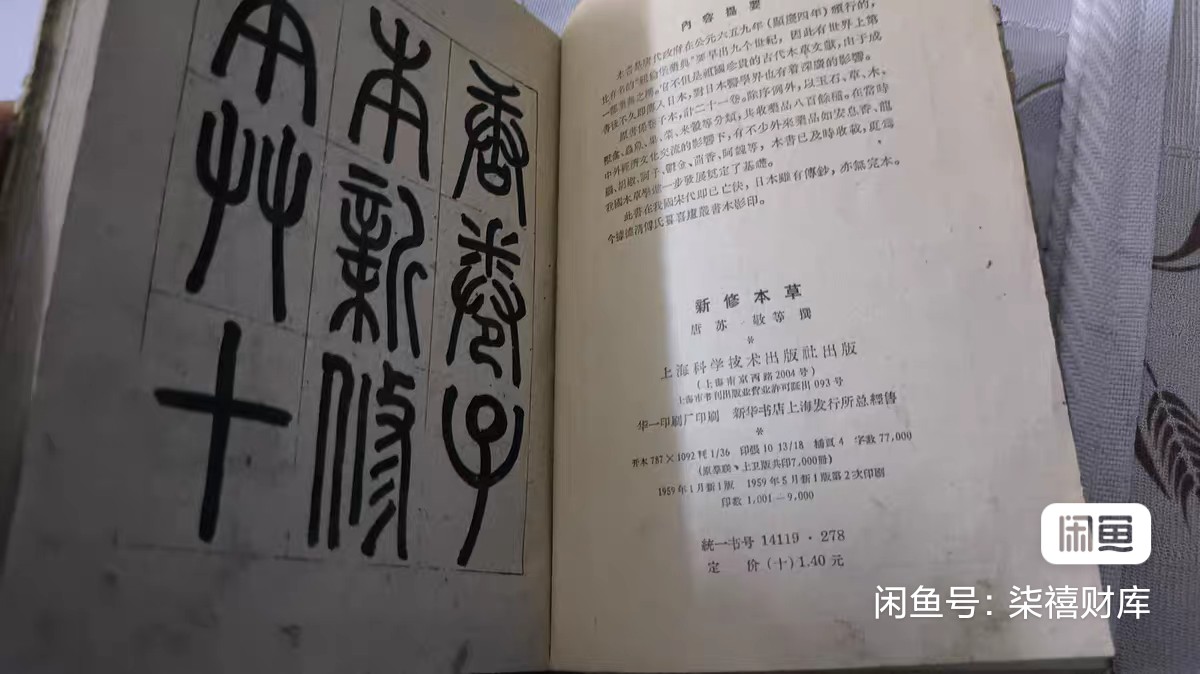 唐卷子
本新修
本艸十
内容提要
本書是唐代政府在公元六五九年(顯慶四年)頒行的,
比有名的"紐倫堡藥典"要早出九个世紀,因此有世界上第
一部藥典之稱。它不但是祖國珍貴的古代本草文献,由于成
書後不久即傳入日本,對日本醫學界也有着深廣的影響。
原書係卷子本,計二十一卷。除序例外,以玉石、草、木、
禽獸、蟲魚、果、菜、米穀等分類,共收藥品八百餘種。在當時
中外經濟文化交流的影響下,有不少外來藥品如安息香、龍
腦、胡椒、訶子、鬱金、茴香、阿魏等,本書已及時收載,更為
我國本草學進一步發展奠定了基礎。
此書在我國宋代即已亡佚,日本雖有傳鈔,亦無完本。
今據德清傅氏籑喜廬叢書本影印。
新修本草
唐 苏 敬等撰
上海科学技术出版社出版
(上海南京西路2004号)
上海市书刊出版业营业许可証出093号
华一印刷厂印刷 新华书店上海发行所总經售
开本787×1092 1/36 印張10 13/18 插頁4 字数77,000
(原羣联、上卫版共印7,000册)
1959年1月新1版 1959年5月新1版第2次印刷
印数 1,001—9,000
統一书号 14119·278
定 价(十)1.40元
闲鱼
闲鱼号:柒禧财库